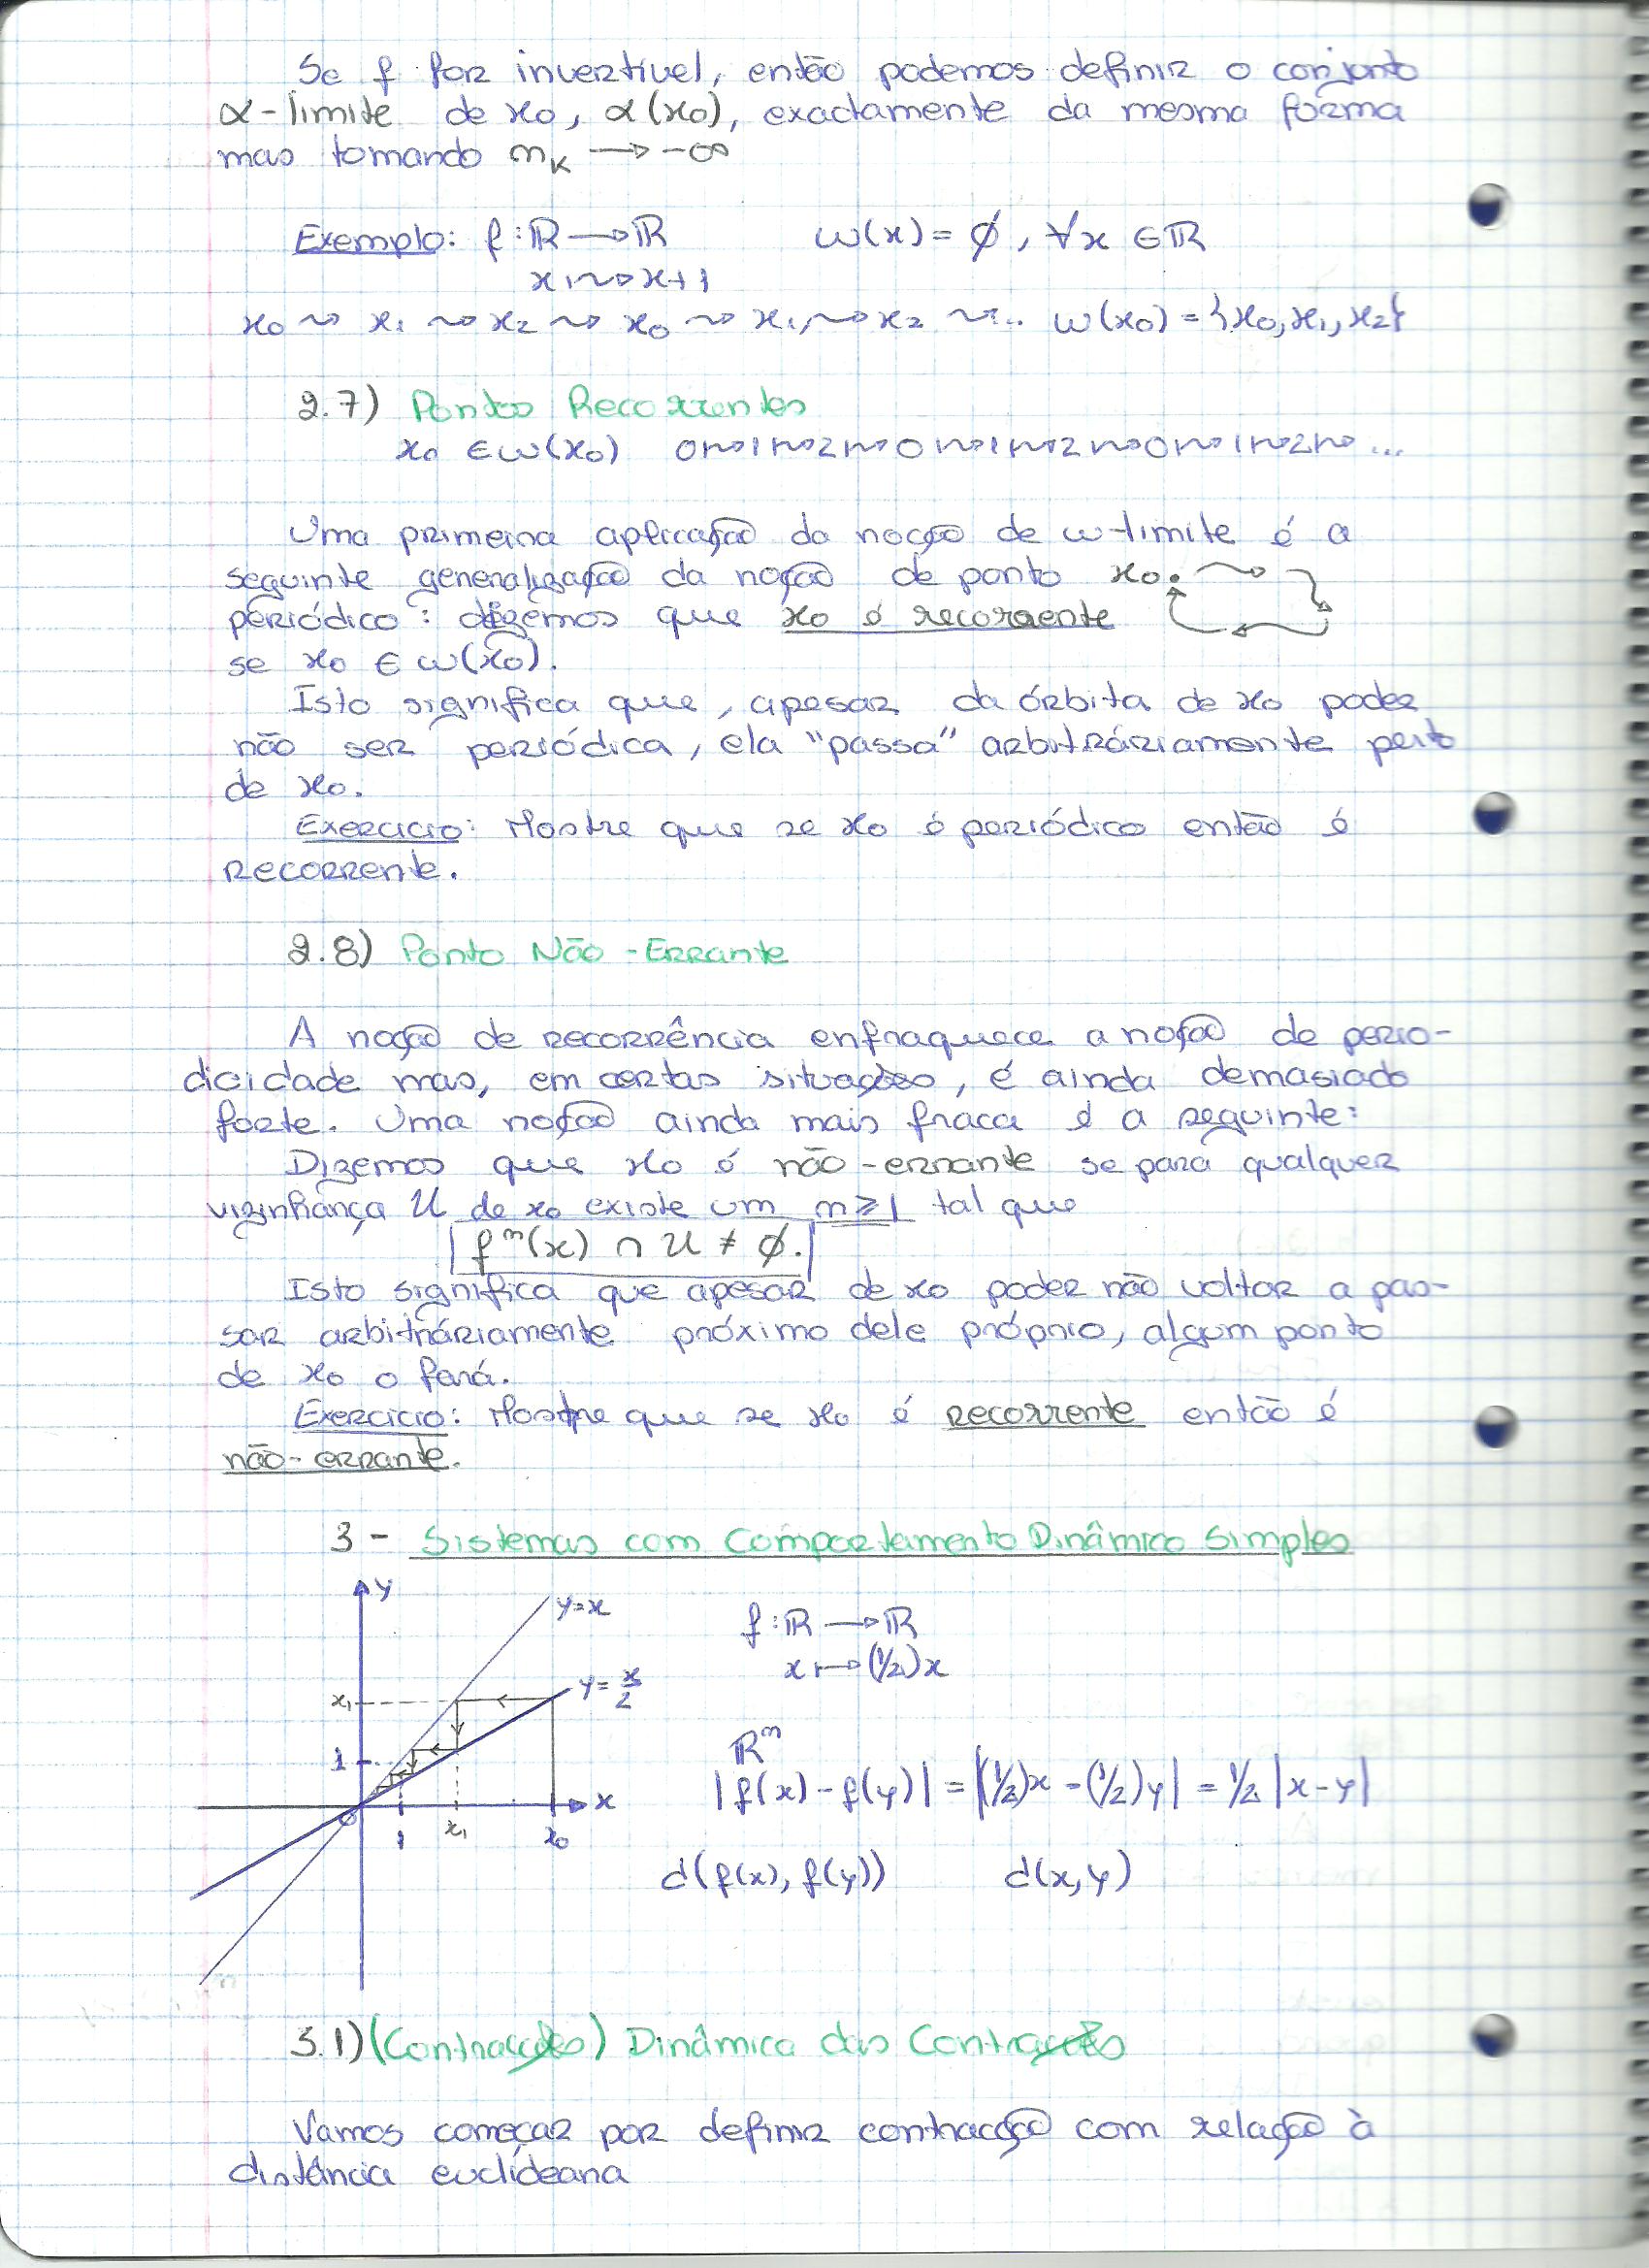 Se f for invertível, então podemos definir o conjunto
α-limite de x₀, α(x₀), exactamente da mesma forma
mas tomando n_k → -∞
Exemplo: f: ℝ → ℝ ω(x) = ∅, ∀x ∈ ℝ
x ⤳ x+1
x₀ ⤳ x₁ ⤳ x₂ ⤳ x₀ ⤳ x₁ ⤳ x₂ ⤳ ... ω(x₀) = {x₀, x₁, x₂}
2.7) Pontos Recorrentes
x₀ ∈ ω(x₀) 0 ⤳ 1 ⤳ 2 ⤳ 0 ⤳ 1 ⤳ 2 ⤳ 0 ⤳ 1 ⤳ 2 ⤳ ...
Uma primeira aplicação da noção de ω-limite é a
seguinte generalização da noção de ponto x₀.
periódico: dizemos que x₀ é recorrente
se x₀ ∈ ω(x₀).
Isto significa que, apesar da órbita de x₀ poder
não ser periódica, ela "passa" arbitráriamente perto
de x₀.
Exercício: Mostre que se x₀ é periódico então é
recorrente.
2.8) Ponto Não-Errante
A noção de recorrência enfraquece a noção de perio-
dicidade mas, em certas situações, é ainda demasiado
forte. Uma noção ainda mais fraca é a seguinte:
Dizemos que x₀ é não-errante se para qualquer
vizinhança U de x₀ existe um n ≥ 1 tal que
fⁿ(x) ∩ U ≠ ∅.
Isto significa que apesar de x₀ poder não voltar a pas-
sar arbitráriamente próximo dele próprio, algum ponto
de x₀ o fará.
Exercício: Mostre que se x₀ é recorrente então é
não-errante.
3 - Sistemas com Comportamento Dinâmico Simples
y
y=x
f: ℝ → ℝ
x ↦ (1/2)x
y = x/2
x₁
ℝⁿ
1
|f(x) - f(y)| = |(1/2)x - (1/2)y| = 1/2 |x-y|
x
0 1 x₁ x₀
d(f(x), f(y)) d(x,y)
3.1) (Contracções) Dinâmica das Contracções
Vamos começar por definir contracção com relação à
distância euclídeana